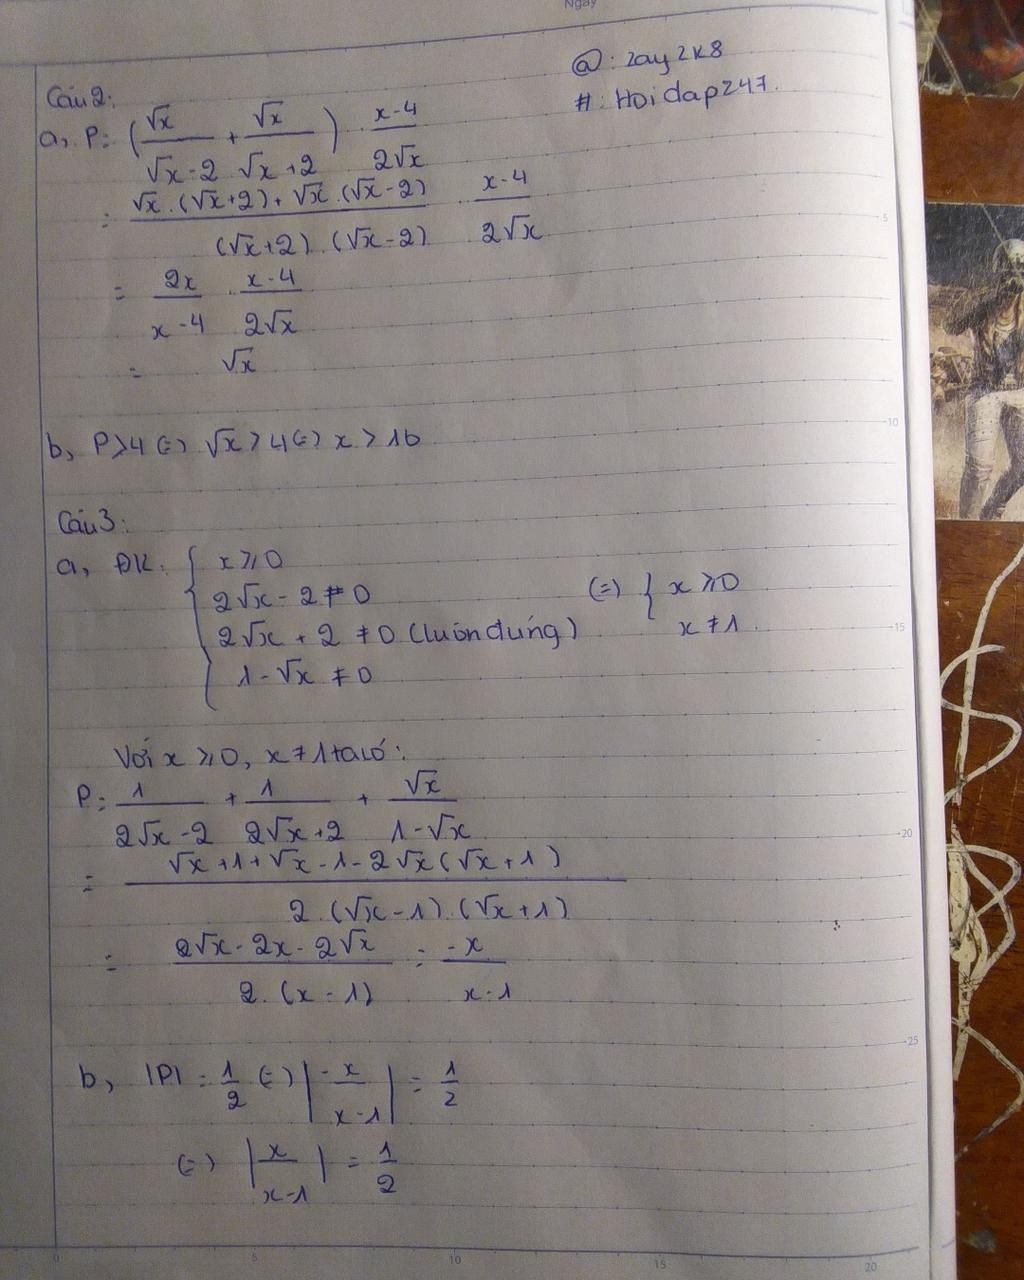 Ngày
@: zay2k8
#: Hoidap247.
Câu 2:
a, P= (√x/(√x-2) + √x/(√x+2)) . (x-4)/(2√x)
= (√x.(√x+2)+√x.(√x-2))/((√x+2).(√x-2)) . (x-4)/(2√x)
= 2x/(x-4) . (x-4)/(2√x)
= √x
b, P>4 (=) √x>4 (=) x>16
Câu 3:
a, ĐK: { x≥0
2√x-2≠0 (=) { x≥0
2√x+2≠0 (luôn đúng) x≠1.
1-√x≠0
Với x≥0, x≠1 ta có:
P= 1/(2√x-2) + 1/(2√x+2) + √x/(1-√x)
= (√x+1+√x-1-2√x(√x+1))/(2.(√x-1).(√x+1))
= (2√x-2x-2√x)/(2.(x-1)) = -x/(x-1)
b, |P| = 1/2 (=) |-x/(x-1)| = 1/2
(=) |x/(x-1)| = 1/2
5
10
15
20
25
0 5 10 15 20